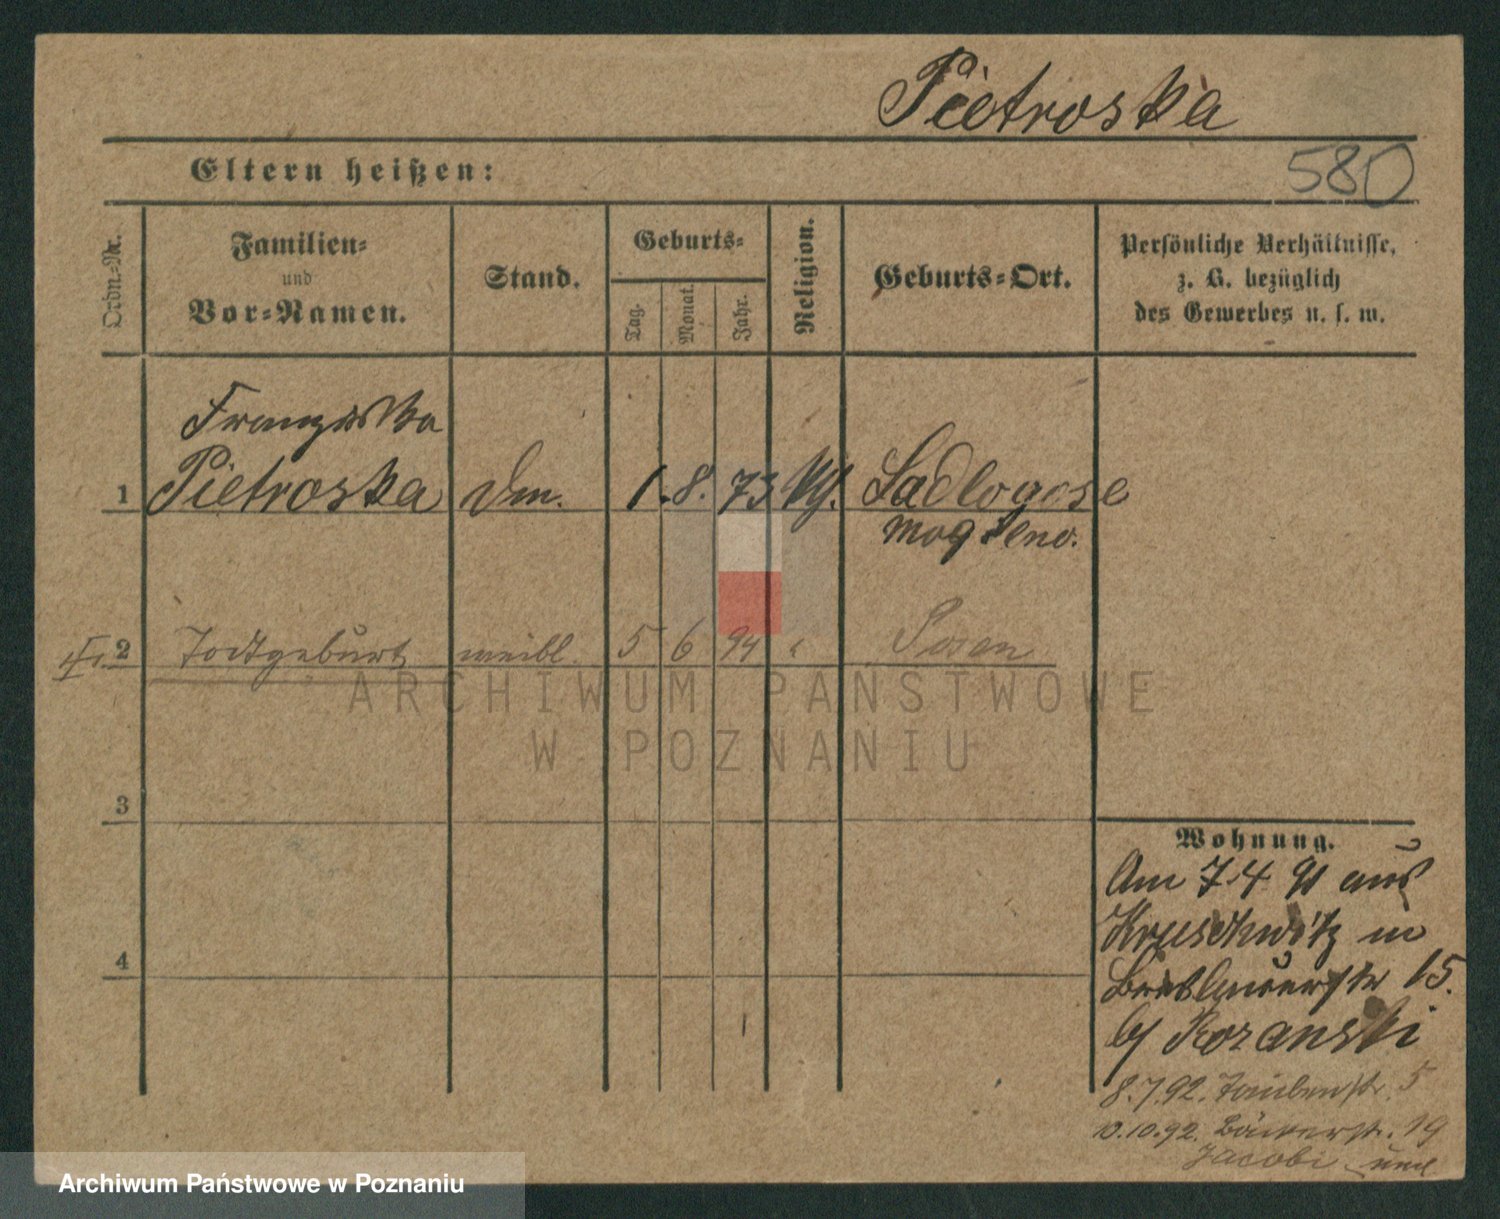 Pietroska
580
Eltern heißen:
Ordn.=Nr.
Familien=
und
Vor=Namen.
Stand.
Geburts=
Tag.
Monat.
Jahr.
Religion.
Geburts=Ort.
Persönliche Verhältnisse,
z. B. bezüglich
des Gewerbes u. s. w.
Franziska
1 Pietroska 1. 8. 73
Mogileno.
2 Todtgeburt weibl. 5 6 94 Posen
ARCHIWUM PAŃSTWOWE
W POZNANIU
3
4
Wohnung.
Am 7.4 91 aus
Kruschwitz in
Breslauerstr 15.
b/ Rozanski
8.7.92. Taubenstr. 5
10.10.92. Bäckerstr. 19
Jacobi
Archiwum Państwowe w Poznaniu